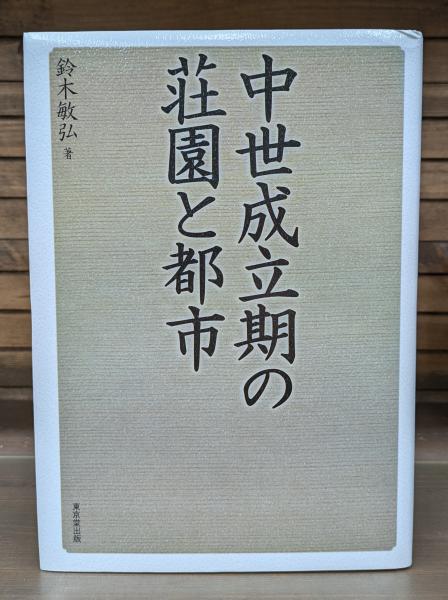 中世成立期の
荘園と都市
鈴木敏弘 著
東京堂出版